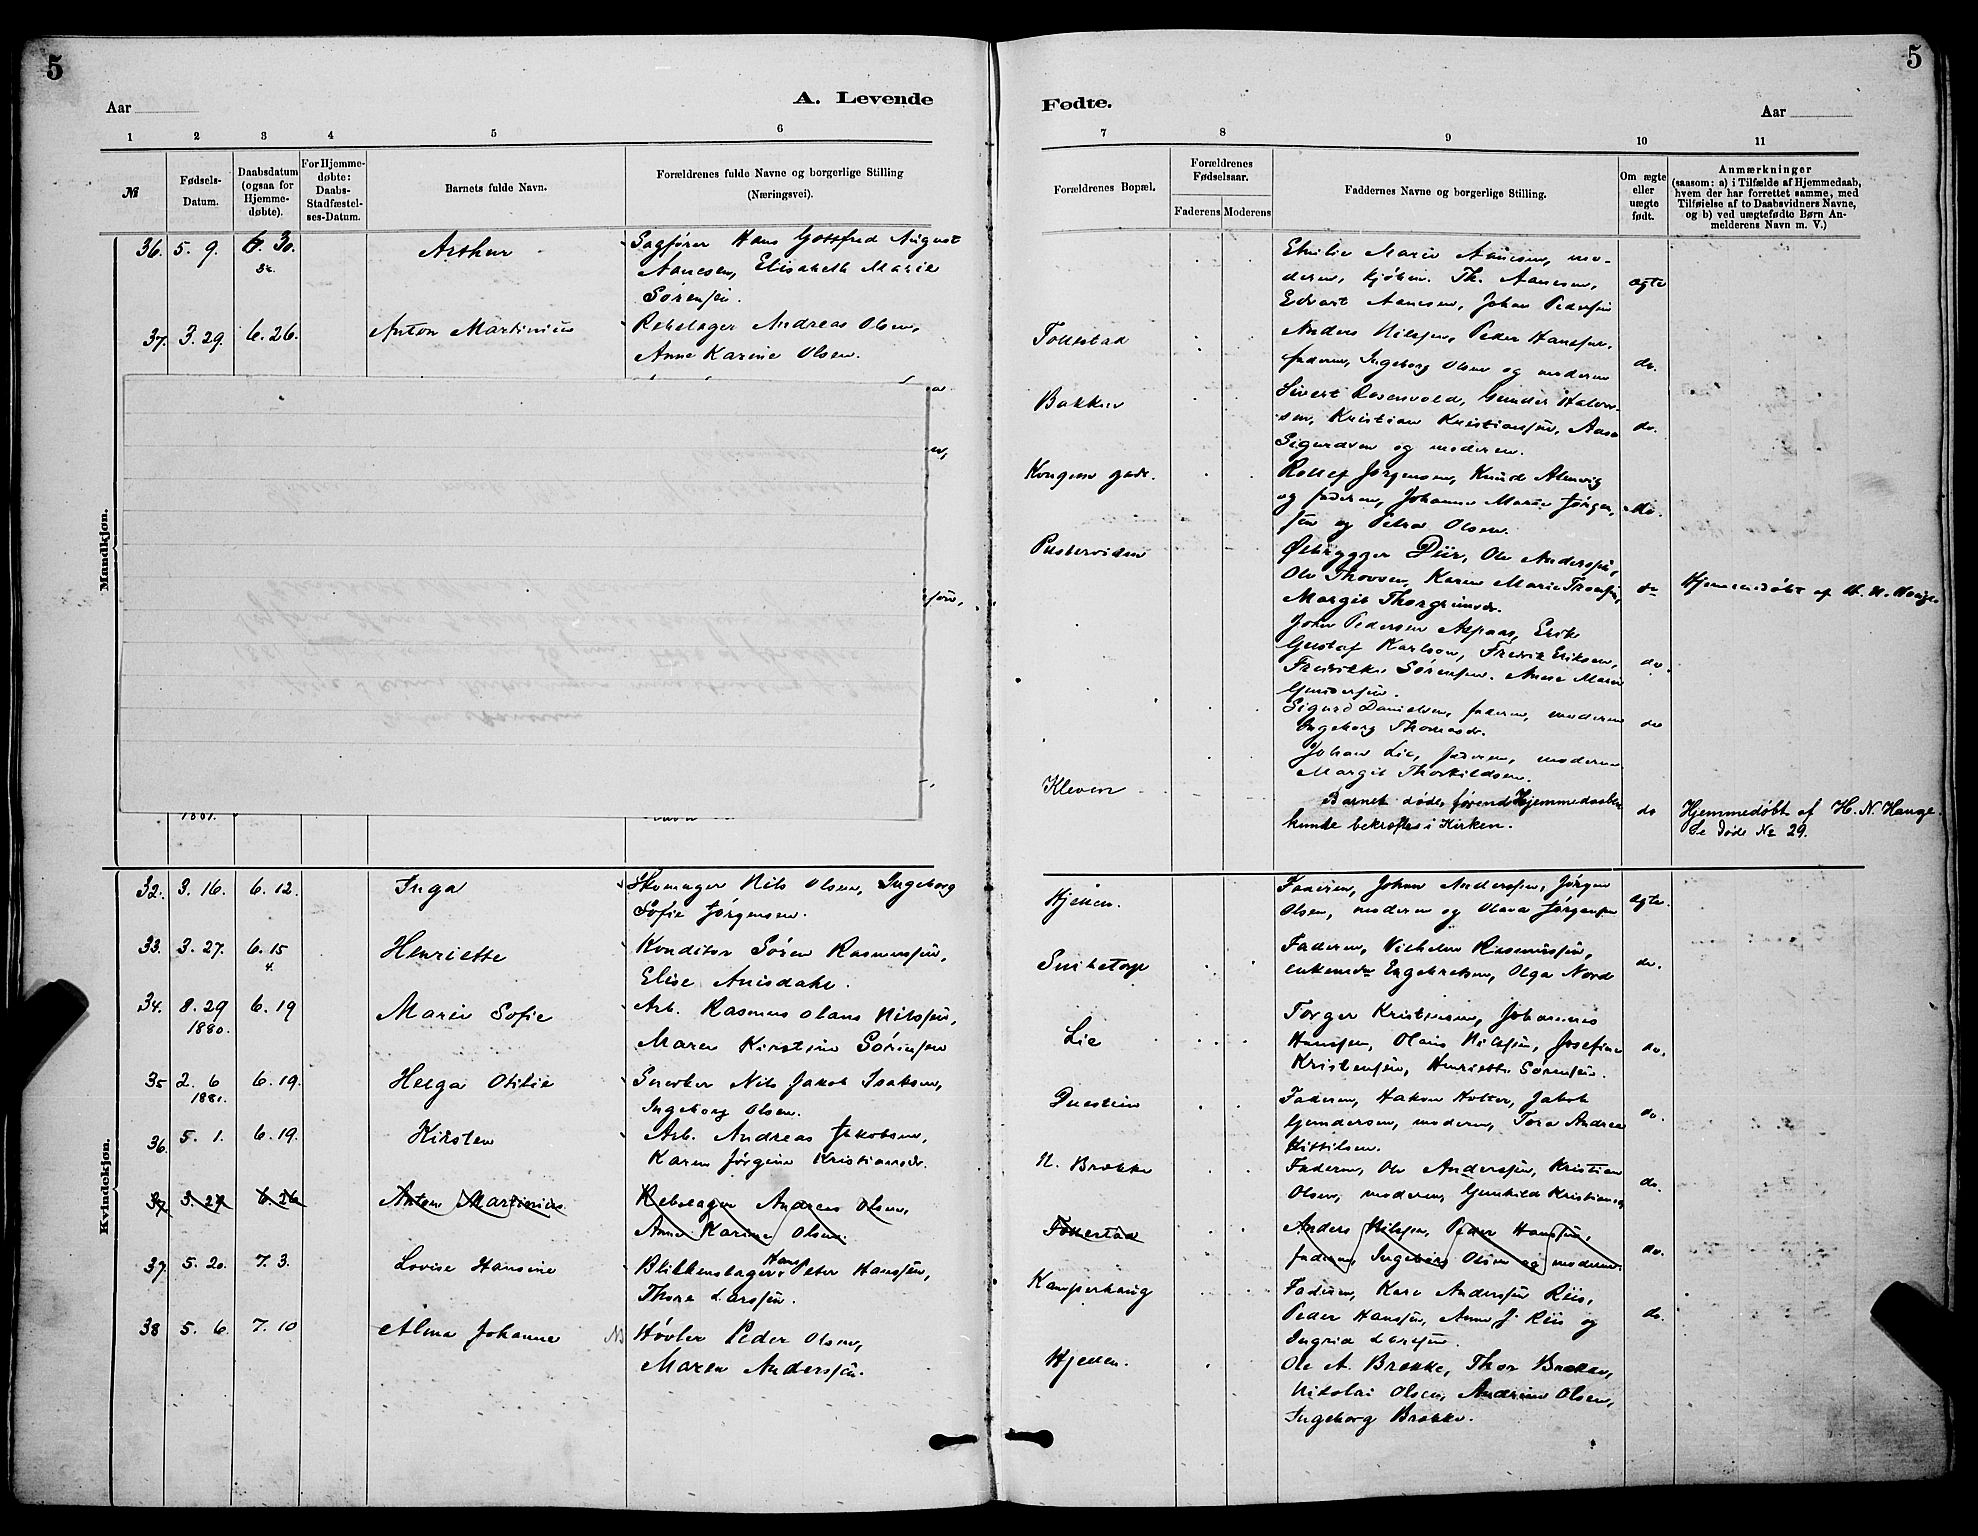 5
5
Aar
A. Levende
Fødte.
Aar
1 2 3 4 5 6
7 8 9 10 11
№
Fødsels-
Datum.
Daabsdatum
(ogsaa for
Hjemme-
døbte).
For Hjemme-
døbte:
Daabs-
Stadfæstel-
ses-Datum.
Barnets fulde Navn.
Forældrenes fulde Navne og borgerlige Stilling
(Næringsvei).
Forældrenes Bopæl.
Forældrenes
Fødselsaar.
Faderens Moderens
Faddernes Navne og borgerlige Stilling.
Om ægte
eller
uægte
født.
Anmærkninger
(saasom: a) i Tilfælde af Hjemmedaab,
hvem der har forrettet samme, med
Tilføielse af to Daabsvidners Navne,
og b) ved uægtefødte Børn An-
melderens Navn m. V.)
Mandkjøn.
36. 5. 9. 6. 30. Arthur
Sagfører Hans Gottfred August
Aanesen, Elisabeth Marie
Sørensen.
Emilie Marie Aanesen, mo-
deren, Kjøbm. Th. Aanesen,
Edvart Aanesen, Johan Pedersen
ægte
37. 3. 29. 6. 26. Anton Martinius
Rebslager Andreas Olsen,
Anne Karine Olsen.
Tollestad
Anders Nilssen, Peder Hanssen,
faderen, Ingeborg Olsen og moderen
do.
Bakken
Sivert Rosenvold, Gunder Halvor-
sen, Kristian Kristiansen, Aase
Sigurdsen og moderen.
do.
Kongens gade.
Rollef Jørgensen, Knud
og faderen, Johanne Marie Jørgen-
sen og Petra Olsen.
do.
Pustervigen
Ølbrygger Düs, Ole Anderssen,
Ole Thovsen, Karen Marie
Margit Thorgrimsdr.
do
Hjemmedøbt af H. N. Hauge.
John Pedersen Alpaas, Erik
Gustaf Karlson, Fredrik Eriksen,
Fredrikke Sørensen, Anne Maren
Gundersen.
do.
Sigurd Danielsen, faderen, moderen
Ingeborg Thomasdr.
do
Johan Lie, faderen, moderen
Margit Thorkildsen.
Kleven
Barnet døde, førend Hjemmedaaben
kunde bekræftes i Kirken.
do
Hjemmedøbt af H. N. Hauge.
Se døde No 29.
1881.
Kvindekjøn.
32. 3. 16. 6. 12. Inga
Skomager Nils Olsen, Ingeborg
Sofie Jørgensen.
Hjellen.
Faderen, Johan Anderssen, Jørgen
Olsen, moderen og Olava Jørgensen
ægte.
33. 3. 27. 6. 15 Henriette
Konditor Søren Rasmussen,
Elise Amsdahl.
Snibetorp
Faderen, Vilhelm Rasmussen,
enkemdm Engebretsen, Olga Nord
do.
34. 8. 29 6. 19 Maren Sofie
1880.
Arb. Rasmus Olaus Nilssen,
Maren Kirstine Sørensen
Lie
Torger Kristensen, Johannes
Hanssen, Olaus Nilssen, Josefine
Kristensen, Henriette Sørensen.
do.
35 2. 6 6. 19. Helga Otilie
1881.
Snedker Nils Jakob Isaksen,
Ingeborg Olsen.
Duestien
Faderen, Hakon Holter, Jakob
Gundersen, moderen, Tora Andrea
Kittilsen.
do.
36. 5. 1. 6. 19. Kirsten
Arb. Andreas Jakobsen,
Karen Jørgine Kristiansdr.
N. Brekke
Faderen, Ole Anderssen, Kristian
Olsen, moderen, Gunhild Kristiansen
do.
37 3. 29 6. 26 Anton Martinius
Rebslager Andreas Olsen,
Anne Karine Olsen.
Tollestad
Anders Nilssen, Peder Hanssen,
faderen, Ingeborg Olsen og moderen
do.
37. 5. 20. 7. 3. Lovise Hansine
Blikkenslager Hans Peter Hanssen,
Thora Larssen.
Kamperhaug
Faderen, Karo Anderssen Riis,
Peder Hanssen, Anne J. Riis og
Ingrid Larssen.
do.
38 5. 6. 7. 10 Alma Johanne
Høvler Peder Olsen,
Maren Anderssen.
Hjellen.
Ole A. Brekke, Thor Brekke,
Nikolai Olsen, Andrine Olsen,
Ingeborg Brekke.